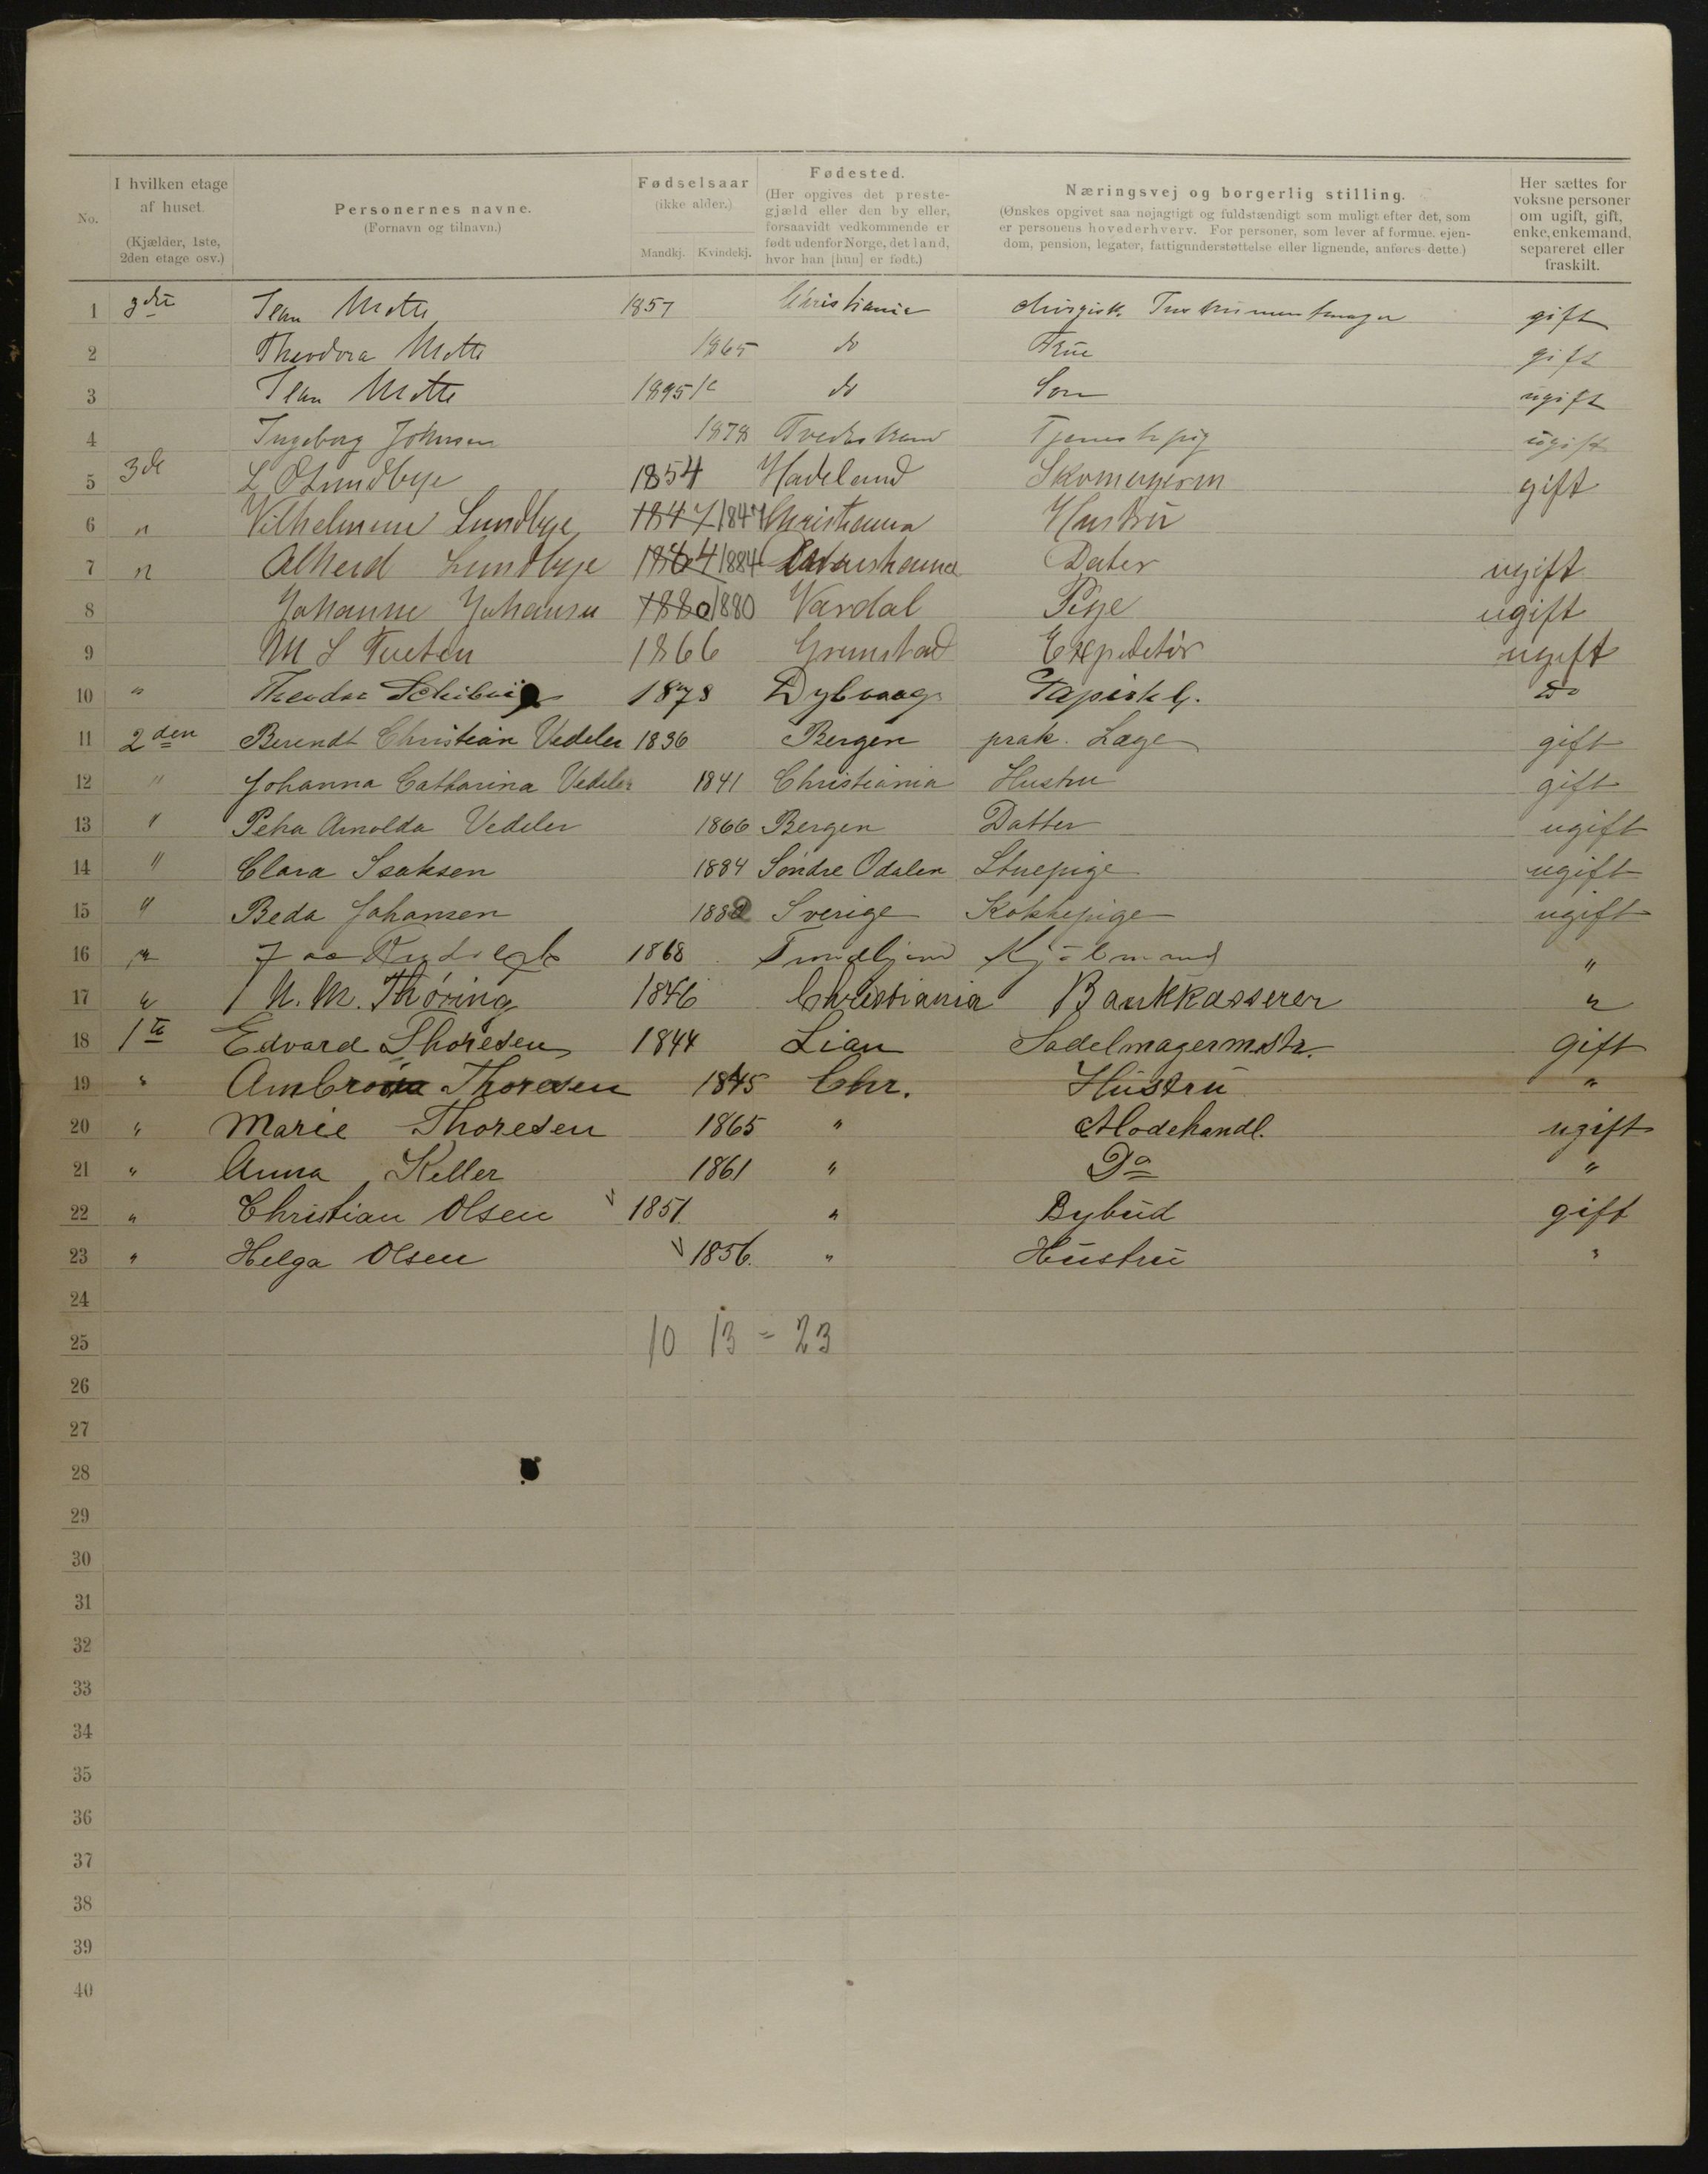 No.
I hvilken etage af huset. (Kjælder, 1ste, 2den etage osv.)
Personernes navne. (Fornavn og tilnavn.)
Fødselsaar (ikke alder.) Mandkj. Kvindekj.
Fødested. (Her opgives det prestegjæld eller den by eller, forsaavidt vedkommende er født udenfor Norge, det land, hvor han [hun] er født.)
Næringsvej og borgerlig stilling. (Ønskes opgivet saa nøjagtigt og fuldstændigt som muligt efter det, som er personens hovederhverv. For personer, som lever af formue, ejendom, pension, legater, fattigunderstøttelse eller lignende, anføres dette.)
Her sættes for voksne personer om ugift, gift, enke, enkemand, separeret eller fraskilt.
1 3die Jean Mette 1857 Christiania chirgisk. Instrumentmager gift
2 Theodora Mette 1865 do Frue gift
3 Jean Mette 1895 do Søn ugift
4 Ingeborg Johnsen 1878 Tvedestrand Tjenestepig ugift
5 3de L O Lundbye 1854 Hadeland Skomagerm gift
6 " Vilhelmine Lundbye 1847 1847 Christiania Hustru
7 " Alheid Lundbye 1864 1884 Christiania Dater ugift
8 Johanne Johansen 1880 1880 Vardal Pige ugift
9 M S Tveten 1866 Grimstad Expeditør ugift
10 " Theodor 1878 Dybvaag Tapisk g. do
11 2den Berendt Christian Vedeler 1836 Bergen prak. Læge gift
12 " Johanna Catharina Vedeler 1841 Christiania Hustru gift
13 " Petra Arnolda Vedeler 1866 Bergen Datter ugift
14 " Clara Isaksen 1884 Søndre Odalen Stuepige ugift
15 " Beda Johansen 1882 Sverige Kokkepige ugift
16 " 1868 Trondhjem Kjøbmand "
17 " N. M. Thøring 1846 Christiania Bankkasserer "
18 1te Edvard Thoresen 1844 Lian Sadelmagermstr. gift
19 " Ambrosia Thoresen 1845 Chr. Hustru "
20 " Marie Thoresen 1865 " Modehandl. ugift
21 " Anna Keller 1861 " Do "
22 " Christian Olsen 1851. " Bybud gift
23 " Helga Olsen 1856. " Hustru "
24
25 10 13 = 23
26
27
28
29
30
31
32
33
34
35
36
37
38
39
40